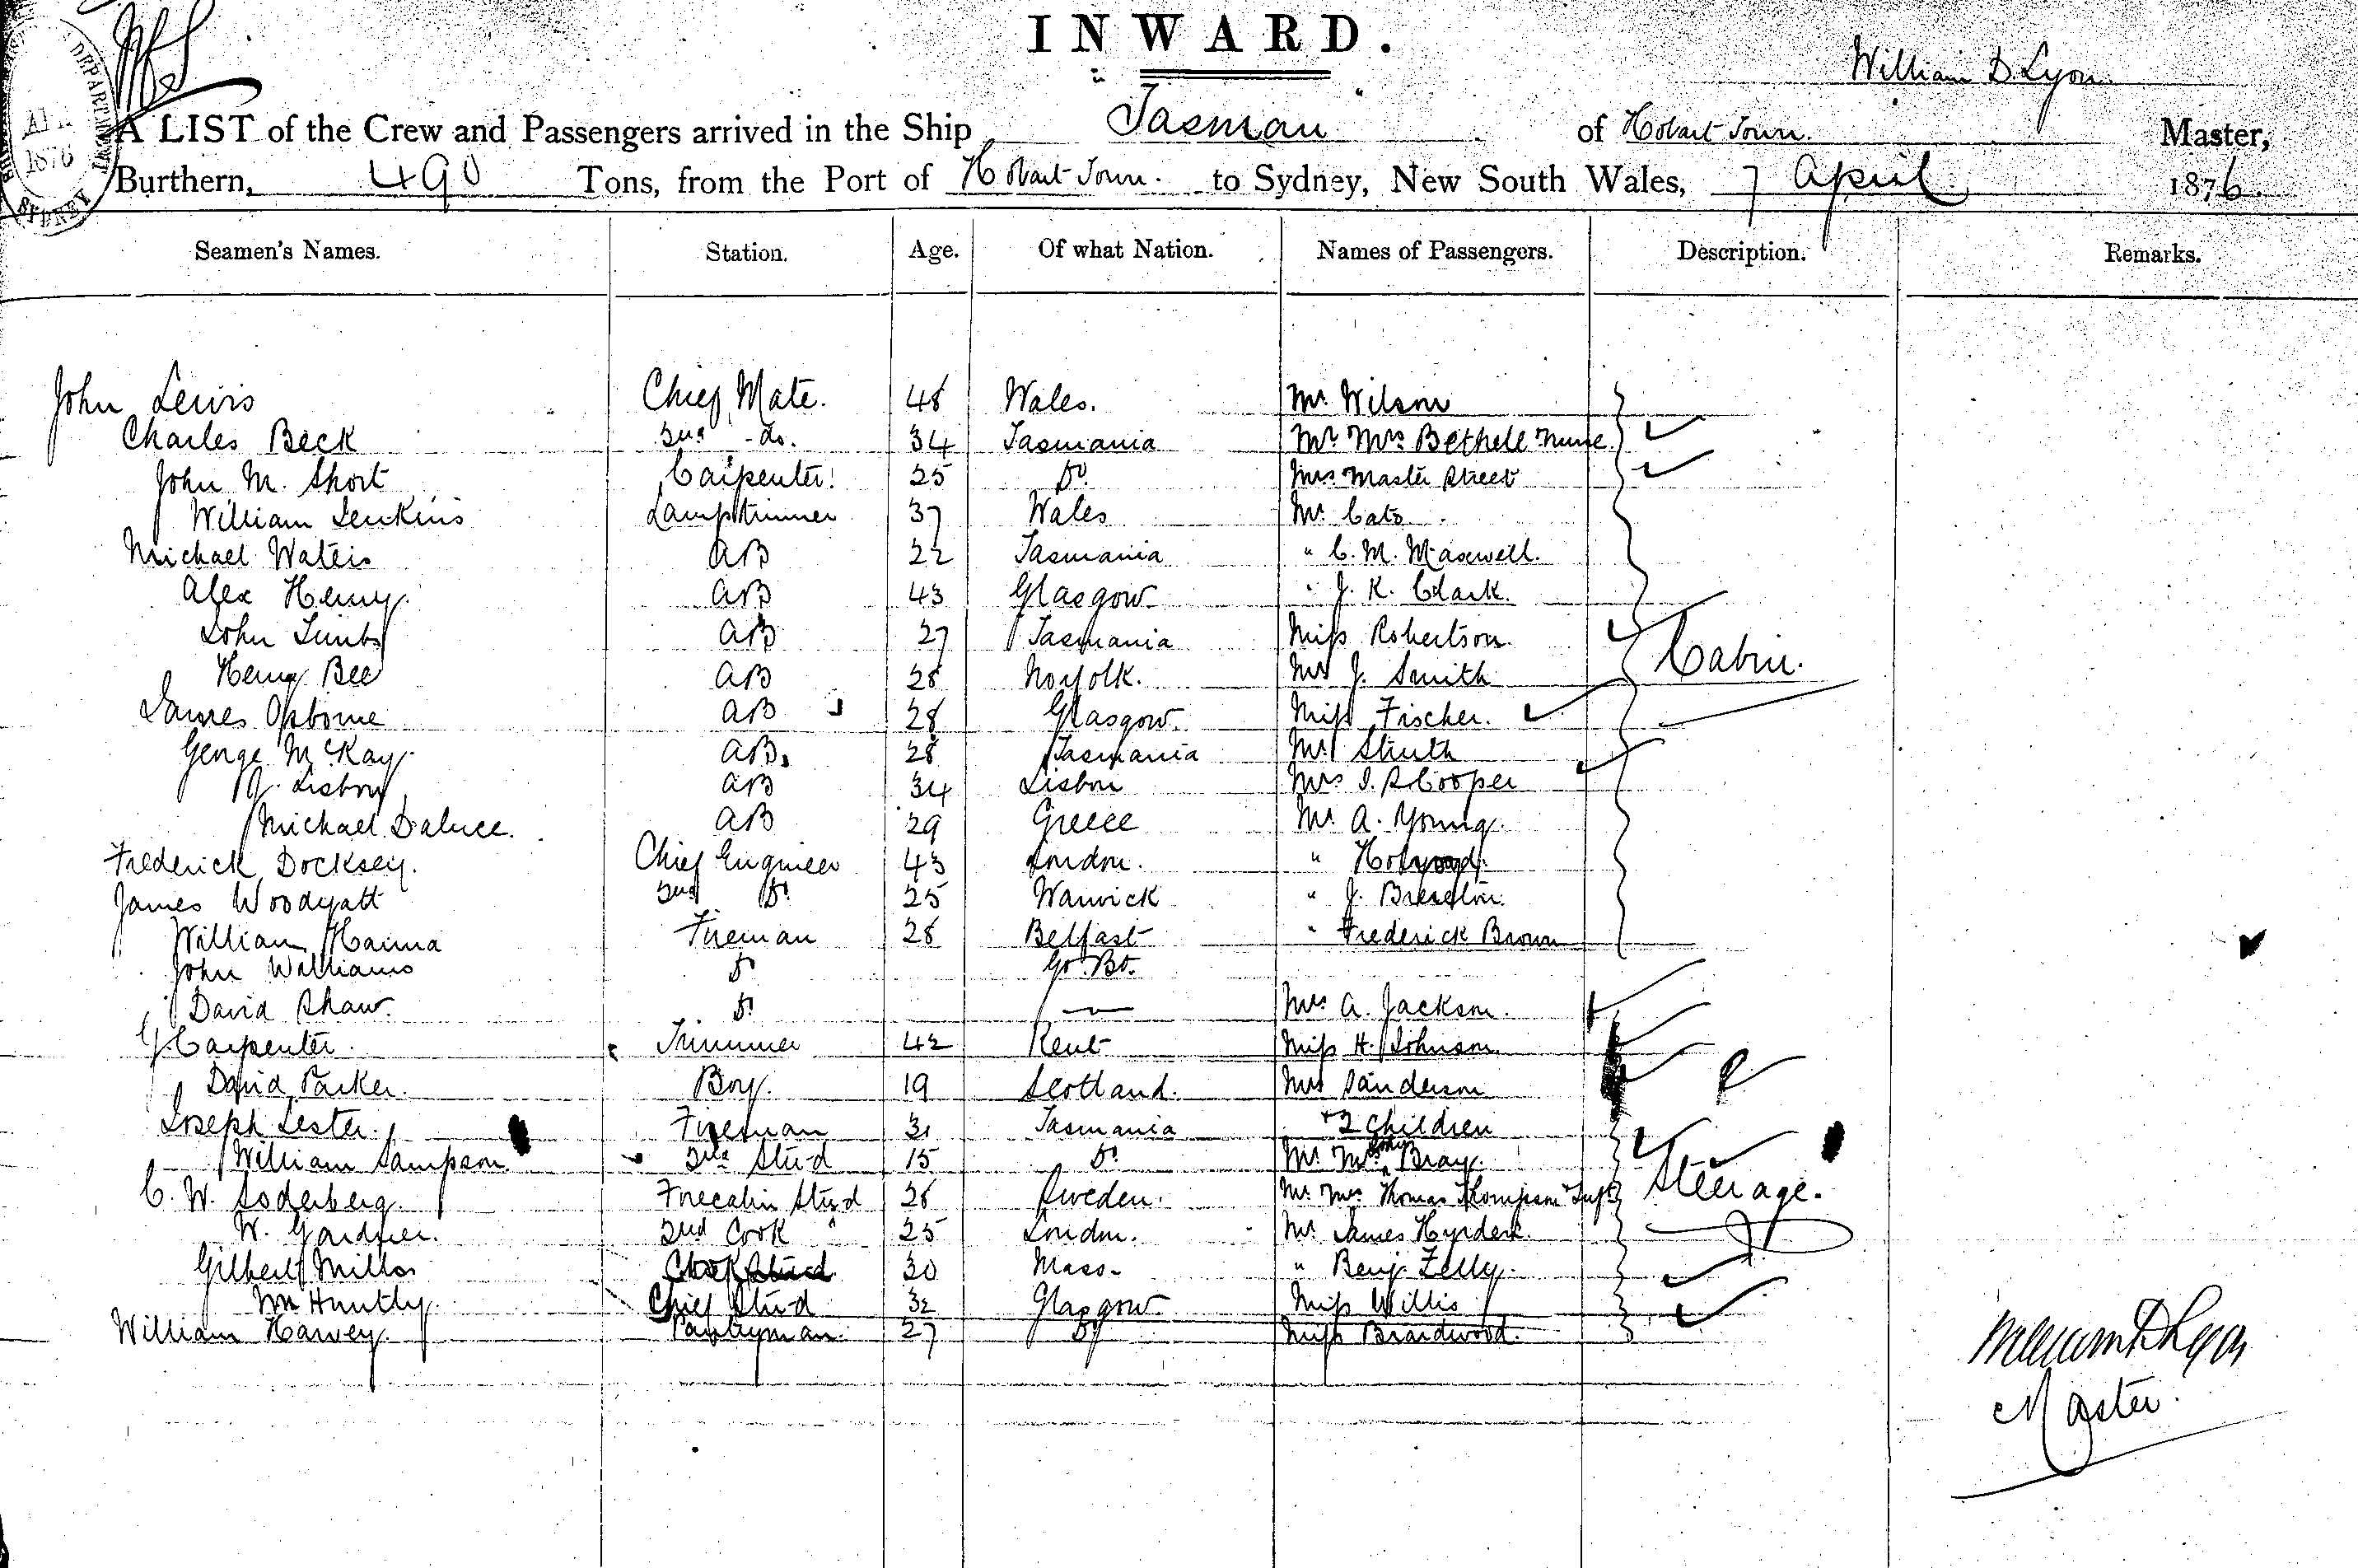 INWARD.
William D Lyon
A LIST of the Crew and Passengers arrived in the Ship Tasman of Hobart Town. Master,
Burthern, 490 Tons, from the Port of Hobart Town. to Sydney, New South Wales, 7 April 1876.
DEPARTMENT SYDNEY 1876
Seamen's Names. Station. Age. Of what Nation. Names of Passengers. Description. Remarks.
John Lewis Chief Mate. 48 Wales. Mr Wilson
Charles Beck 2nd do. 34 Tasmania Mr Mrs Bethell Nurse
John M. Short Carpenter 25 Do Mrs Master Street
William Jenkins Lamptrimmer 37 Wales Mr Cato
Michael Waters AB 22 Tasmania " C. M. Maxwell.
Alex Henry AB 43 Glasgow " J. K. Clark.
John AB 27 Tasmania Miss Robertson.
Henry Bee AB 28 Norfolk. Mr J. Smith Cabin.
James Osborne AB 28 Glasgow. Miss Fischer.
George McKay AB. 28 Tasmania Mr
Lisbon AB 34 Lisbon Mrs Cooper
Michael Daluce. AB 29 Greece Mr A. Young.
Frederick Docksey. Chief Engineer 43 London. "
James Woodyatt 2nd Do 25 Warwick " J. Brereton.
William Hanna Fireman 28 Belfast " Frederick Brown
John Williams Do Go. Bo.
David Shaw. Do — Mrs A. Jackson.
Carpenter. Trimmer 42 Kent Miss H. Johnson
David Parker. Boy. 19 Scotland. Mrs Sanderson
Joseph Lester. Fireman 31 Tasmania + 2 Children
William Sampson 2nd Stw-d 15 Do Mr Mrs Bray.
C. W. Soderberg. Forecabin Stw-d 28 Sweden. Mr Mrs Thomas Thompson + Inft Steerage.
W. Gardner. 2nd Cook 25 London. Mr James
Gilbert Mills 30 Mass. " Benj.
Wm Huntly. Chief Stw-d 32 Glasgow. Miss Willis
William Harvey. Pantryman. 27 Do Miss Braidwood.
William D Lyon
Master.